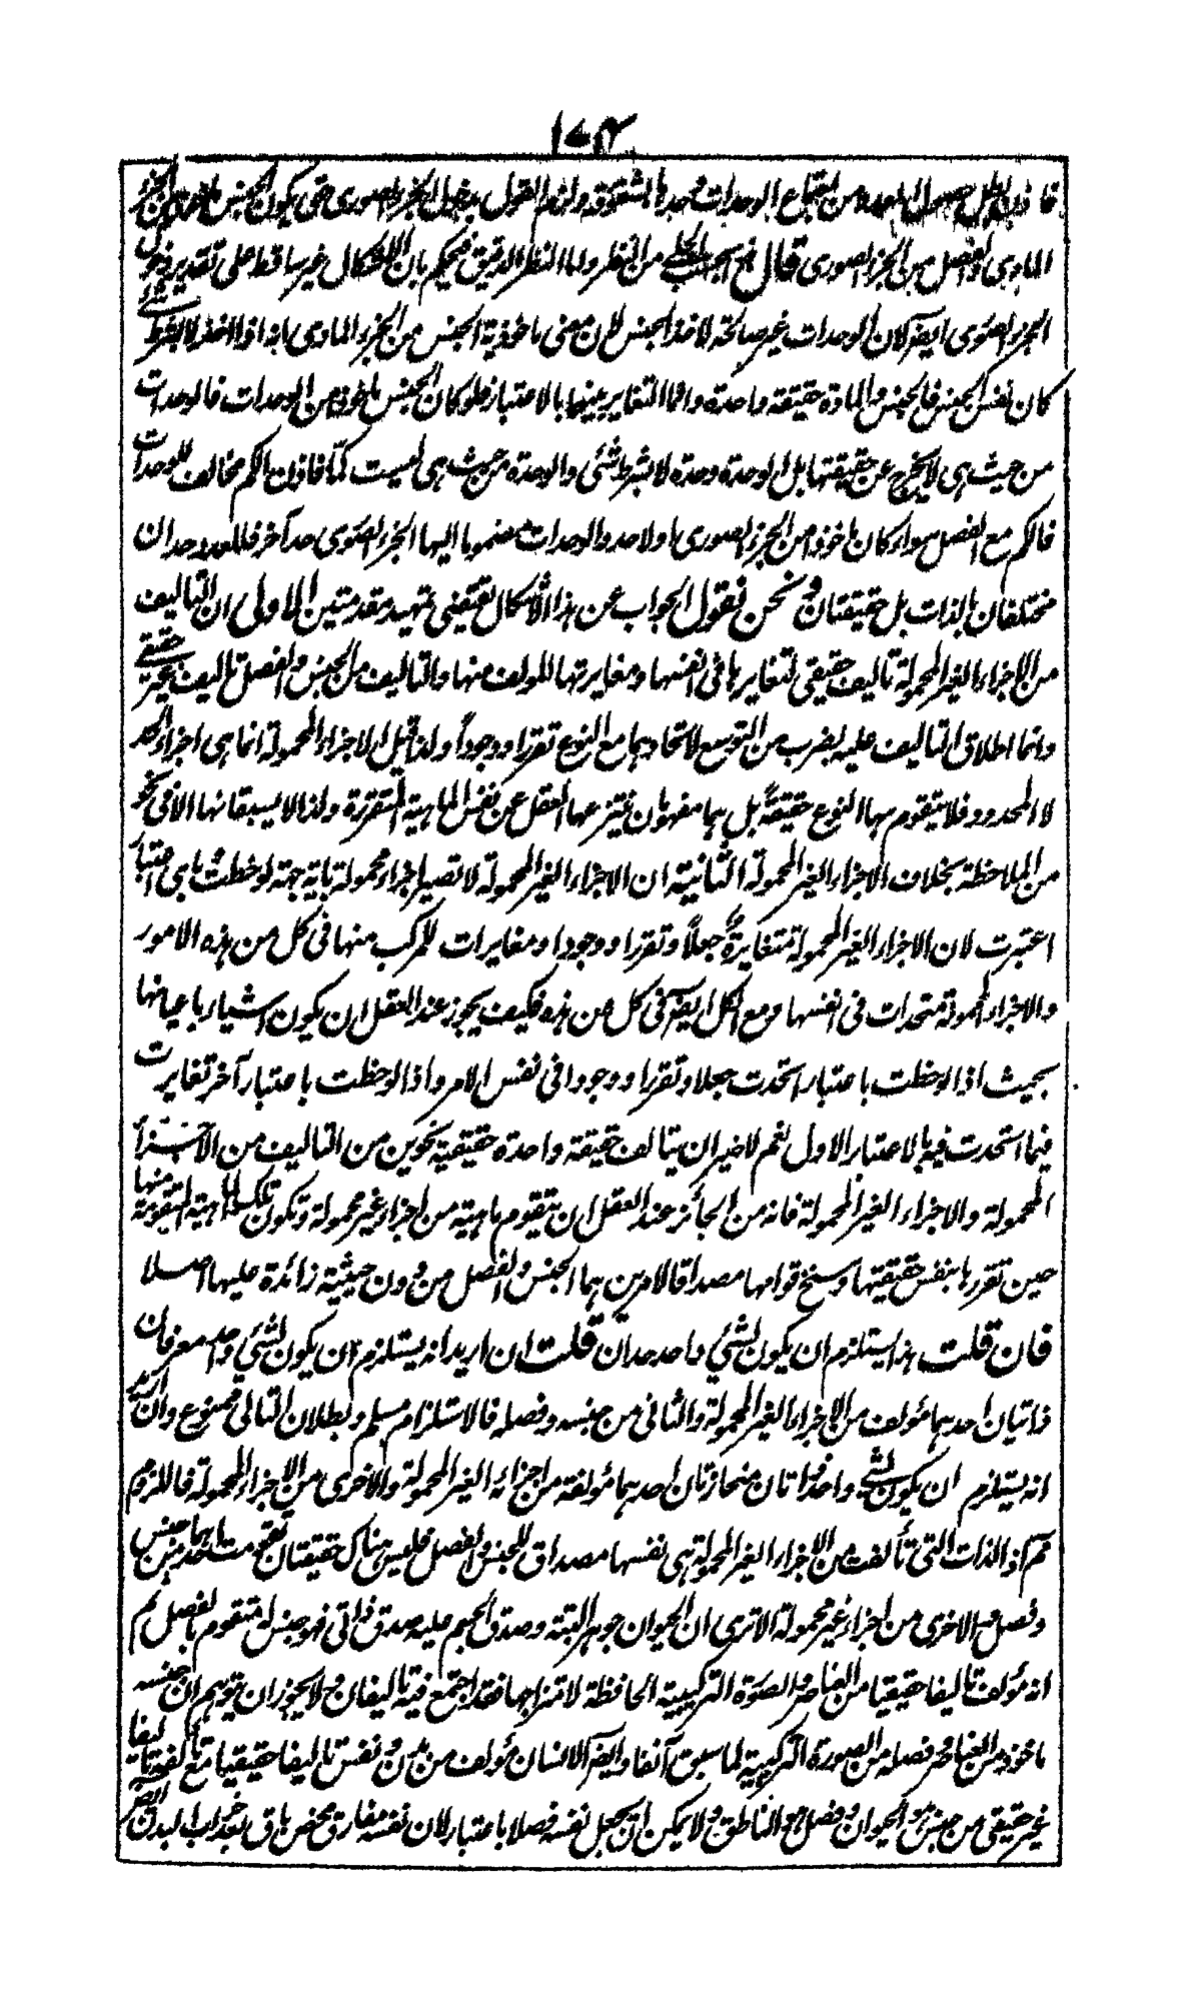 ١٥٤
فاذن الجنس من اجتماع الوحدات القول بدخول الجزء الصورى حتى يكون الجنس ماخوذا من الجزء
المادى والفصل من الجزء الصورى قال من النظر واما النظر الدقيق فيحكم بان الاشكال غير ساقط على تقدير دخول
الجزء الصورى ايضا لان الوحدات غير صالحة لاخذ الجنس لان معنى ماخوذية الجنس من الجزء المادى انه اذا اخذ لا بشرط شئ
كان نفس الجنس فالجنس والمادة حقيقة واحدة وانما التغاير بينهما بالاعتبار فلو كان الجنس ماخوذا من الوحدات فالوحدات
من حيث هى لا يخرج عن حقيقتها بل الوحدة وحدة لا بشرط شئ والوحدة من حيث هى ليست كمّا فاذن الكم مخالف للوحدات
فالكم مع الفصل سواء كان ماخوذا من الجزء الصورى اولا حد والوحدات مضموما اليها الجزء الصورى حد آخر فللعدد حدان
مختلفان بالذات بل حقيقتان ونحن نقول الجواب عن هذا الاشكال يقتضى تمهيد مقدمتين الاولى ان التاليف
من الاجزاء الغير المحمولة تاليف حقيقى لتغايرها فى انفسها ومغايرتها للمولف منها والتاليف من الجنس والفصل تاليف غير حقيقى
وانما اطلاق التاليف عليه بضرب من التوسع لاتحادهما مع النوع تقررا ووجوداً ولذا قيل الاجزاء المحمولة انما هى اجزاء الحد
لا المحدود فلا يتقوم بهما النوع حقيقةً بل هما مفهومان ينتزعهما العقل عن نفس الماهية المتقررة ولذا لا يسبقانها الا فى نحو
من الملاحظة بخلاف الاجزاء الغير المحمولة الثانية ان الاجزاء الغير المحمولة لا تصير اجزاء محمولة باية جهة لوحظت وباى اعتبار
اعتبرت لان الاجزاء الغير المحمولة متغايرة جعلاً وتقررا ووجودا ومغايرات للمركب منها فى كل من هذه الامور
والاجزاء المحمولة متحدات فى انفسها ومع الكل ايضا فى كل من هذه فكيف يجوز عند العقل ان يكون اشياء باعيانها
بحيث اذا لوحظت باعتبار اتحدت جعلا وتقررا ووجودا فى نفس الامر واذا لوحظت باعتبار آخر تغايرت
فيما اتحدت فيه بالاعتبار الاول نعم لا ضير ان يتالف حقيقة واحدة حقيقية بنحوين من التاليف من الاجزاء
المحمولة والاجزاء الغير المحمولة فانه من الجائز عند العقل ان يتقوم ماهية من اجزاء غير محمولة وتكون تلك الماهية المتقومة منها
حين تقررها بنفس حقيقتها وسنخ قوامها مصداقا لامرين هما الجنس والفصل من دون حيثية زائدة عليها اصلا
فان قلت هذا يستلزم ان يكون لشئ واحد حدان قلت ان اريد انه يستلزم ان يكون لشئ واحد معرفان
ذاتيان احدهما مؤلف من الاجزاء الغير المحمولة والثانى من جنسه وفصله فالاستلزام مسلم وبطلان التالى ممنوع وان اريد
انه يستلزم ان يكون لشئ واحد ذاتان منحازتان احدهما مؤلفة من اجزائه الغير المحمولة والاخرى من الاجزاء المحمولة فاللزوم
مم اذ الذات التى تألفت من الاجزاء الغير المحمولة هى نفسها مصداق للجنس والفصل فليس هناك حقيقتان تقومت احدهما من جنس
وفصل والاخرى من اجزاء غير محمولة الا ترى ان الحيوان جوهر البتة وصدق الجسم عليه صدق ذاتى فهو جنس له متقوم بالفصل ثم
انه مؤلف تاليفا حقيقيا من العناصر والصورة التركيبية الحافظة لامتزاجها فقد اجتمع فيه تاليفان ولا يجوز ان يتوهم ان جنسه
ماخوذ من العناصر وفصله من الصورة التركيبية لما سبق آنفا وايضا الانسان مؤلف من بدن ونفس تاليفا حقيقيا مع تالفه تاليفا
غير حقيقى من جنس هو الحيوان وفصل هو الناطق ولا يمكن ان يجعل نفسه فصلا باعتبار لان نفسه مفارق محض باق بعد خراب البدن